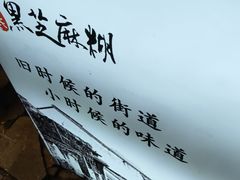 黑芝麻糊
旧时候的街道
小时候的味道